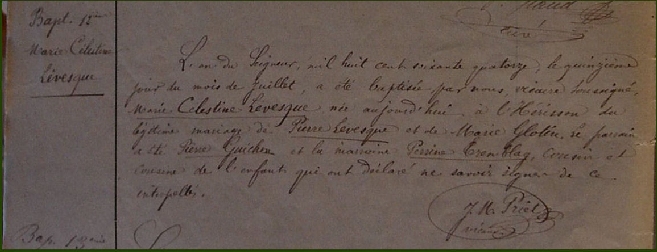 Bapt. 15e
Marie Célestine
Lévesque
L'an du Seigneur, mil huit cent soixante quatorze, le quinzième
jour du mois de Juillet, a été baptisée par nous, vicaire soussigné,
Marie Celestine Levesque, née aujourd'hui, à l'Hérisson du
légitime mariage de Pierre Levesque et de Marie Glotin, le parrain
a été Pierre Guichen et la marraine Perrine Tremblay, cousin et
cousine de l'enfant qui ont déclaré ne savoir signer de ce
interpellés.
J. M.
vic.
Bap.